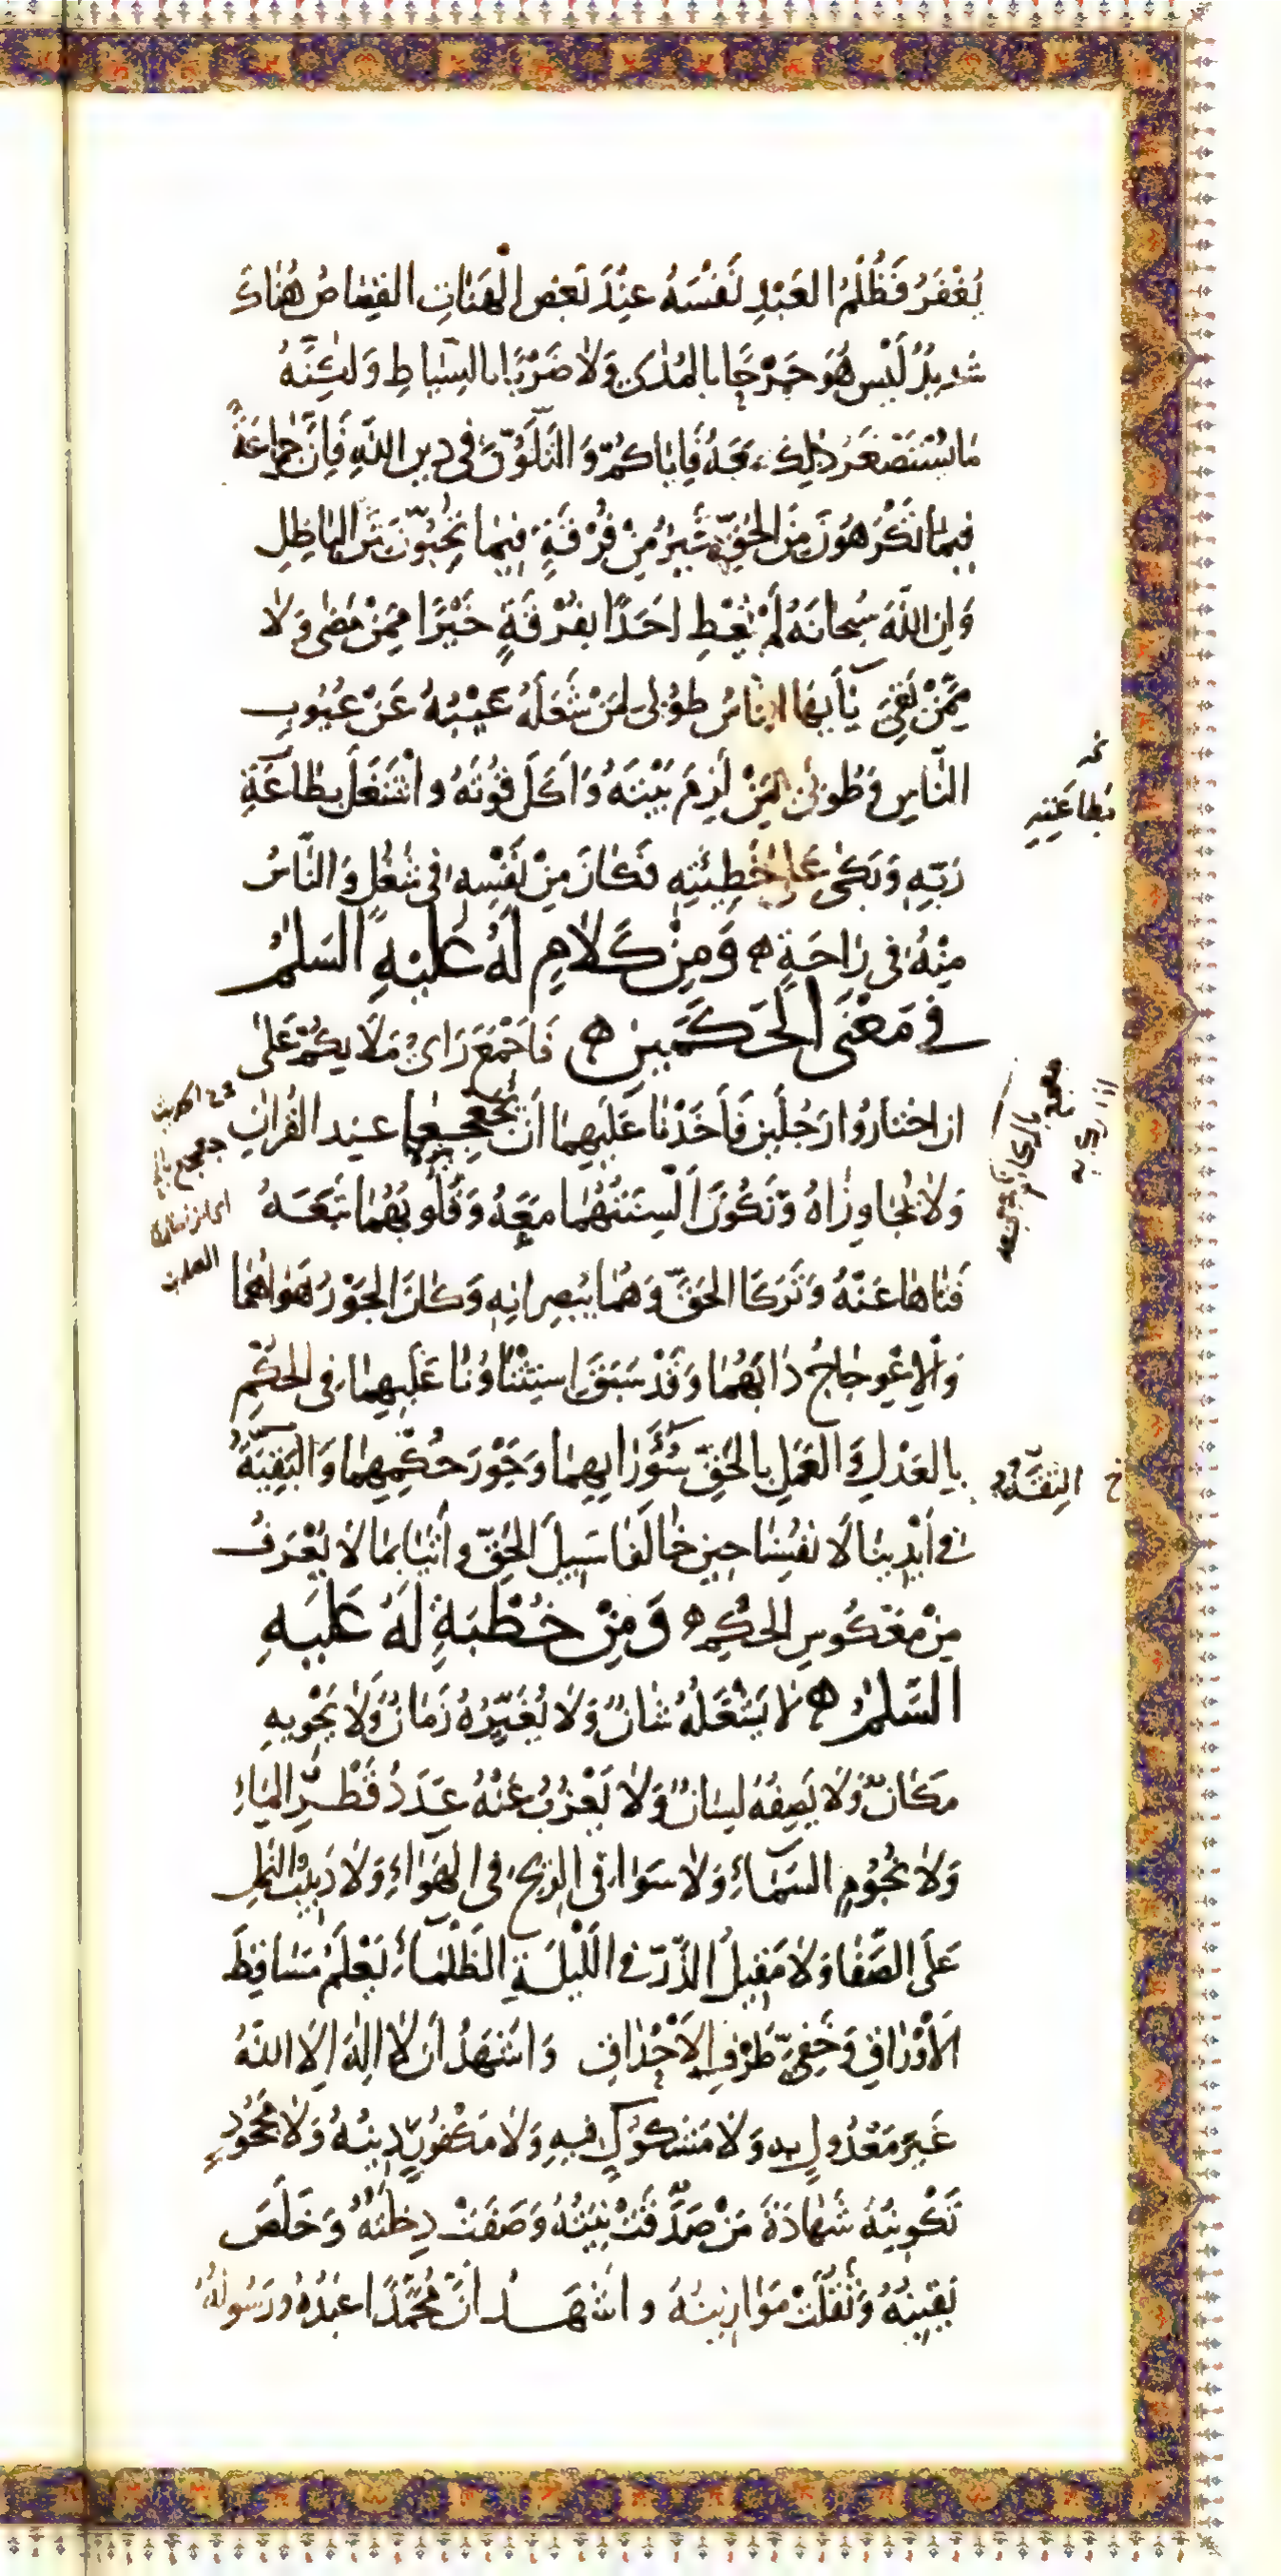 يُغْفَرُ فَظُلْمُ الْعَبْدِ نَفْسَهُ عِنْدَ بَعْضِ الْهَنَاتِ الْقِصَاصُ هُنَاكَ
شَدِيدٌ لَيْسَ هُوَ جَرْحًا بِالْمُدَى وَلَا ضَرْبًا بِالسِّيَاطِ وَلٰكِنَّهُ
مَا يُسْتَصْغَرُ ذٰلِكَ مَعَهُ فَإِيَّاكُمْ وَالتَّلَوُّنَ فِي دِينِ اللهِ فَإِنَّ جَمَاعَةً
فِيمَا تَكْرَهُونَ مِنَ الْحَقِّ خَيْرٌ مِنْ فُرْقَةٍ فِيمَا تُحِبُّونَ مِنَ الْبَاطِلِ
وَإِنَّ اللهَ سُبْحَانَهُ لَمْ يُعْطِ أَحَدًا بِفُرْقَةٍ خَيْرًا مِمَّنْ مَضٰى وَلَا
مِمَّنْ بَقِيَ يَا أَيُّهَا النَّاسُ طُوبٰى لِمَنْ شَغَلَهُ عَيْبُهُ عَنْ عُيُوبِ
النَّاسِ وَطُوبٰى لِمَنْ لَزِمَ بَيْتَهُ وَأَكَلَ قُوتَهُ وَاشْتَغَلَ بِطَاعَةِ
رَبِّهِ وَبَكٰى عَلٰى خَطِيئَتِهِ فَكَانَ مِنْ نَفْسِهِ فِي شُغُلٍ وَالنَّاسُ
مِنْهُ فِي رَاحَةٍ ه وَمِنْ كَلَامٍ لَهُ عَلَيْهِ السَّلٰمُ
فِي مَعْنَى الْحَكَمَيْنِ ه فَأَجْمَعَ رَأْيُ مَلَائِكُمْ عَلٰى
أَنِ اخْتَارُوا رَجُلَيْنِ فَأَخَذْنَا عَلَيْهِمَا أَنْ يُجَعْجِعَا عِنْدَ الْقُرْاٰنِ
وَلَا يُجَاوِزَاهُ وَتَكُونَ أَلْسِنَتُهُمَا مَعَهُ وَقُلُوبُهُمَا تَبَعَهُ
فَتَاهَا عَنْهُ وَتَرَكَا الْحَقَّ وَهُمَا يُبْصِرَانِهِ وَكَانَ الْجَوْرُ هَوَاهُمَا
وَالْاِعْوِجَاجُ دَأْبَهُمَا وَقَدْ سَبَقَ اسْتِثْنَاؤُنَا عَلَيْهِمَا فِي الْحُكْمِ
بِالْعَدْلِ وَالْعَمَلِ بِالْحَقِّ سُوءَ رَأْيِهِمَا وَجَوْرَ حُكْمِهِمَا وَالْبَقِيَّةُ
خ الثِّقَةُ
فِي أَيْدِينَا لِأَنْفُسِنَا حِينَ خَالَفَا سَبِيلَ الْحَقِّ وَأَتَيَا بِمَا لَا يُعْرَفُ
مِنْ مَعْكُوسِ الْحُكْمِ ه وَمِنْ خُطْبَةٍ لَهُ عَلَيْهِ
السَّلٰمُ ه لَا يَشْغَلُهُ شَانٌ وَلَا يُغَيِّرُهُ زَمَانٌ وَلَا يَحْوِيهِ
مَكَانٌ وَلَا يَصِفُهُ لِسَانٌ وَلَا يَعْزُبُ عَنْهُ عَدَدُ قَطْرِ الْمَاءِ
وَلَا نُجُومِ السَّمَاءِ وَلَا سَوَافِي الرِّيحِ فِي الْهَوَاءِ وَلَا دَبِيبُ النَّمْلِ
عَلَى الصَّفَا وَلَا مَقِيلُ الذَّرِّ فِي اللَّيْلَةِ الظَّلْمَاءِ يَعْلَمُ مَسَاقِطَ
الْأَوْرَاقِ وَخَفِيَّ طَرْفِ الْأَحْدَاقِ وَأَشْهَدُ أَنْ لَا إِلٰهَ إِلَّا اللهُ
غَيْرَ مَعْدُولٍ بِهِ وَلَا مَشْكُوكٍ فِيهِ وَلَا مَكْفُورٍ دِينُهُ وَلَا مَجْحُودٍ
تَكْوِينُهُ شَهَادَةَ مَنْ صَدَقَتْ نِيَّتُهُ وَصَفَتْ دِخْلَتُهُ وَخَلَصَ
يَقِينُهُ وَثَقُلَتْ مَوَازِينُهُ وَأَشْهَدُ أَنَّ مُحَمَّدًا عَبْدُهُ وَرَسُولُهُ